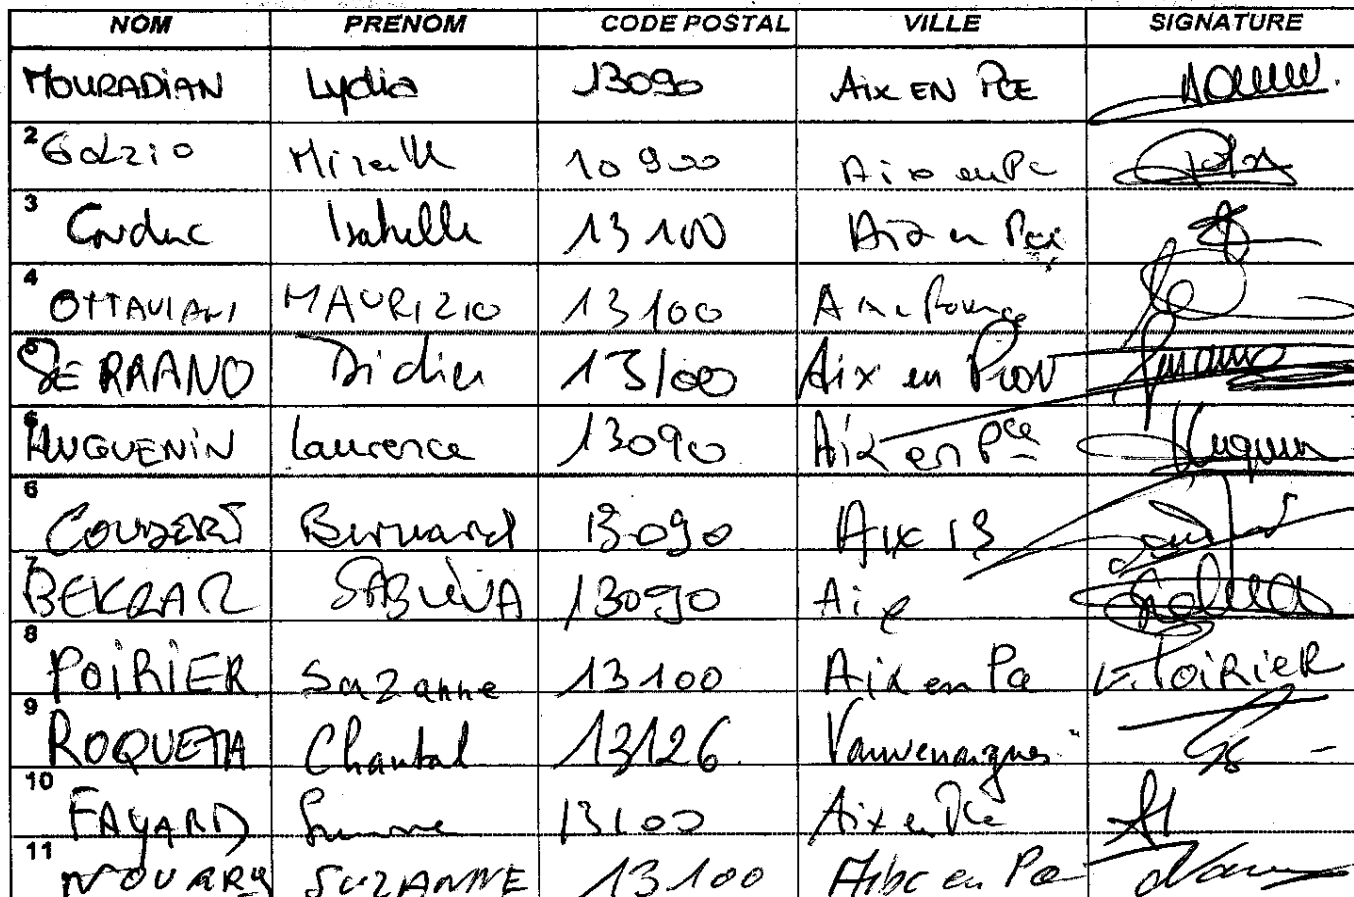 NOM PRENOM CODE POSTAL VILLE SIGNATURE
MOURADIAN Lydia 13090 AIX EN PCE
2 Golzio Mireille 10900 Aix en Pc
3 Conduc Isabelle 13100 Aix en Pce
4 OTTAVIANI MAURIZIO 13100
5 SERRANO Didier 13100 Aix en Prov
6 HUGUENIN Laurence 13090 Aix en Pce Huguenin
6 Bernard 13090 Aix 13
7 BEKRAR SABRINA 13090 Aix
8 POIRIER Suzanne 13100 Aix en Pce POIRIER
9 ROQUETA Chantal 13126 Vauvenargues
10 FAYARD 13100 Aix en Pce
11 NOUARY SUZANNE 13100 Aix en Pce